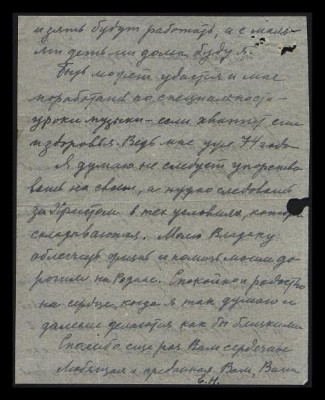 и зять будут работать, а с малы-
ми детьми дома буду я.
Быть может удастся и мне
поработать по специальности -
уроки музыки - если хватит сил
и здоровья. Ведь мне уже
Я думаю не следует упорство
вать на своем, а нужно следовать
за Христом в тех условиях, которые
складываются. Моему Владыку
облегчить и помочь моим до
рогим на Родине. Спокойно и радостно
на сердце, когда я так думаю и
далекие делаются как бы близкими
Спасибо еще раз Вам сердечное
Любящая и преданная Вам, Ваша
Е.Н.